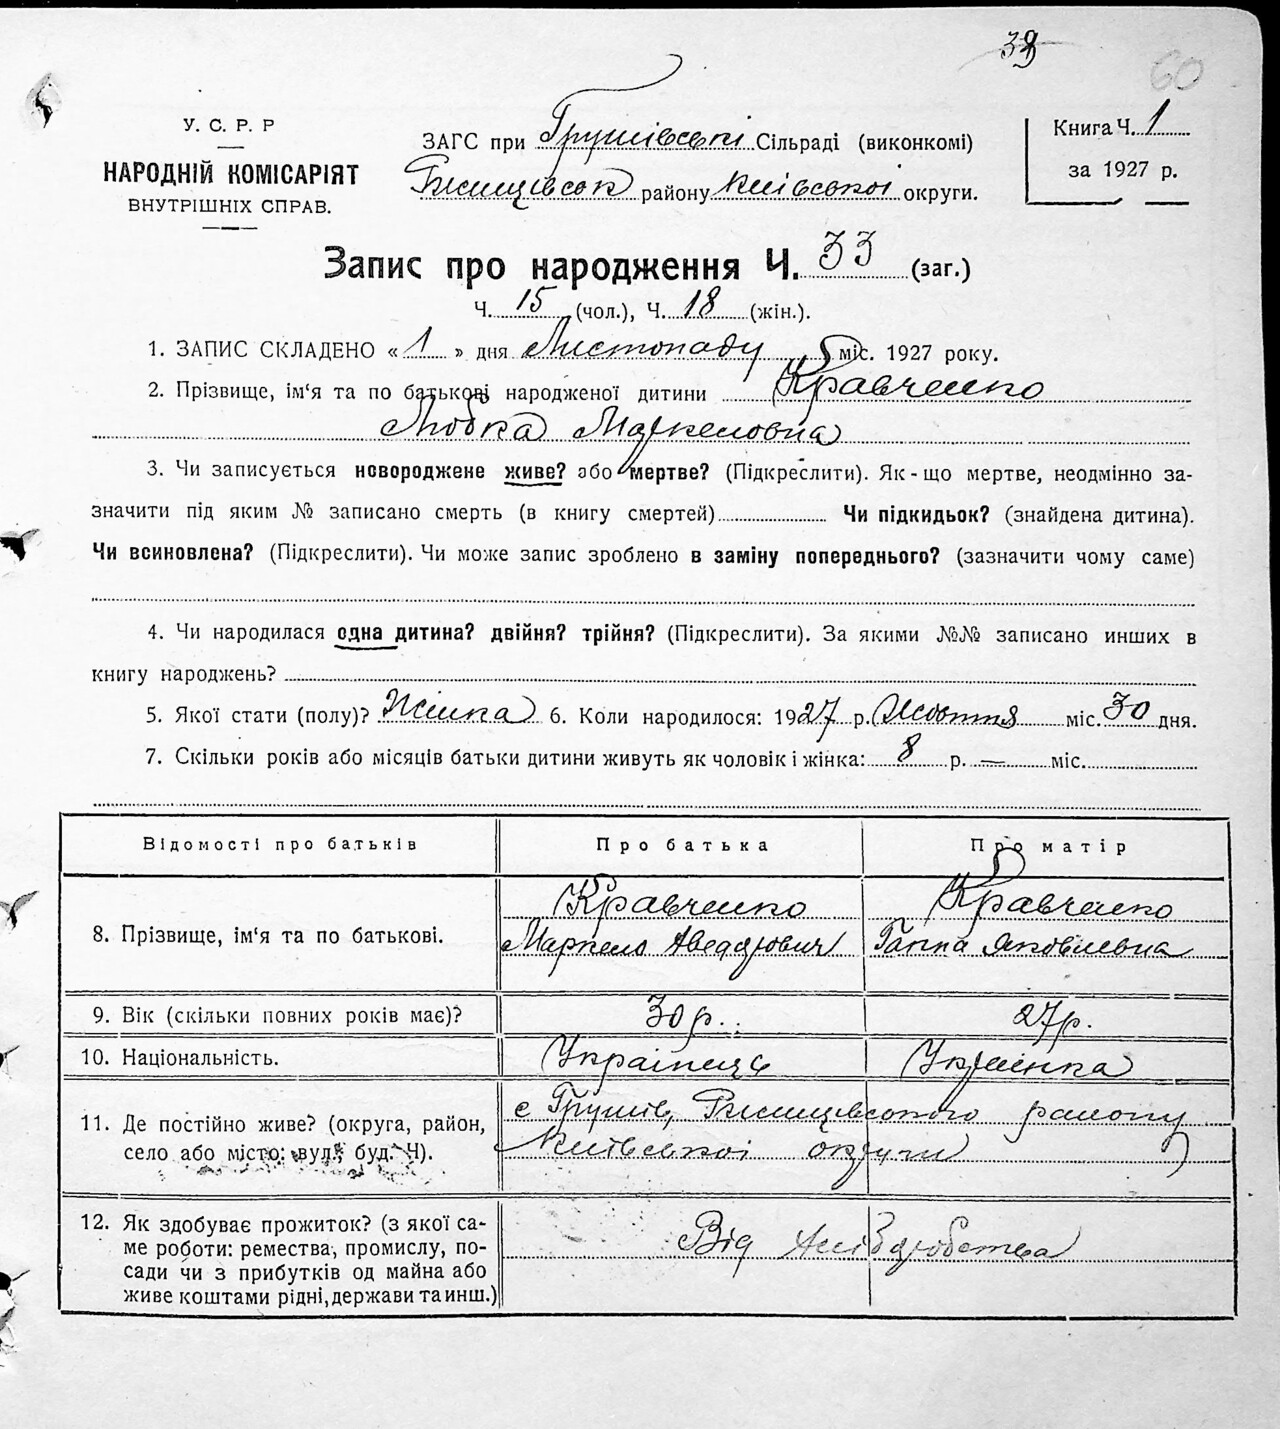 39
60
У. С. Р. Р
НАРОДНІЙ КОМІСАРІЯТ
ВНУТРІШНІХ СПРАВ.
ЗАГС при Грушівські Сільраді (виконкомі)
Ржищівськ району Київської округи.
Книга Ч. 1
за 1927 р.
Запис про народження Ч. 33 (заг.)
Ч. 15 (чол.), Ч. 18 (жін.).
1. ЗАПИС СКЛАДЕНО «1» дня Листопаду міс. 1927 року.
2. Прізвище, ім'я та по батькові народженої дитини Кравченко
Любка Маркеловна
3. Чи записується новороджене живе? або мертве? (Підкреслити). Як-що мертве, неодмінно за-
значити під яким № записано смерть (в книгу смертей) Чи підкидьок? (знайдена дитина).
Чи всиновлена? (Підкреслити). Чи може запис зроблено в заміну попереднього? (зазначити чому саме)
4. Чи народилася одна дитина? двійня? трійня? (Підкреслити). За якими №№ записано инших в
книгу народжень?
5. Якої стати (полу)? Жінка 6. Коли народилося: 1927 р. Жовтня міс. 30 дня.
7. Скільки років або місяців батьки дитини живуть як чоловік і жінка: 8 р. — міс.
Відомості про батьків Про батька Про матір
8. Прізвище, ім'я та по батькові.
Кравченко
Маркело
Кравченко
Ганна Яковлевна
9. Вік (скільки повних років має)? 30 р. 27 р.
10. Національність. Українець Українка
11. Де постійно живе? (округа, район,
село або місто: вул., буд. Ч).
с Грушів, Ржищівського району
Київської округи
12. Як здобуває прожиток? (з якої са-
ме роботи: ремества, промислу, по-
сади чи з прибутків од майна або
живе коштами рідні, держави та инш.)
Від